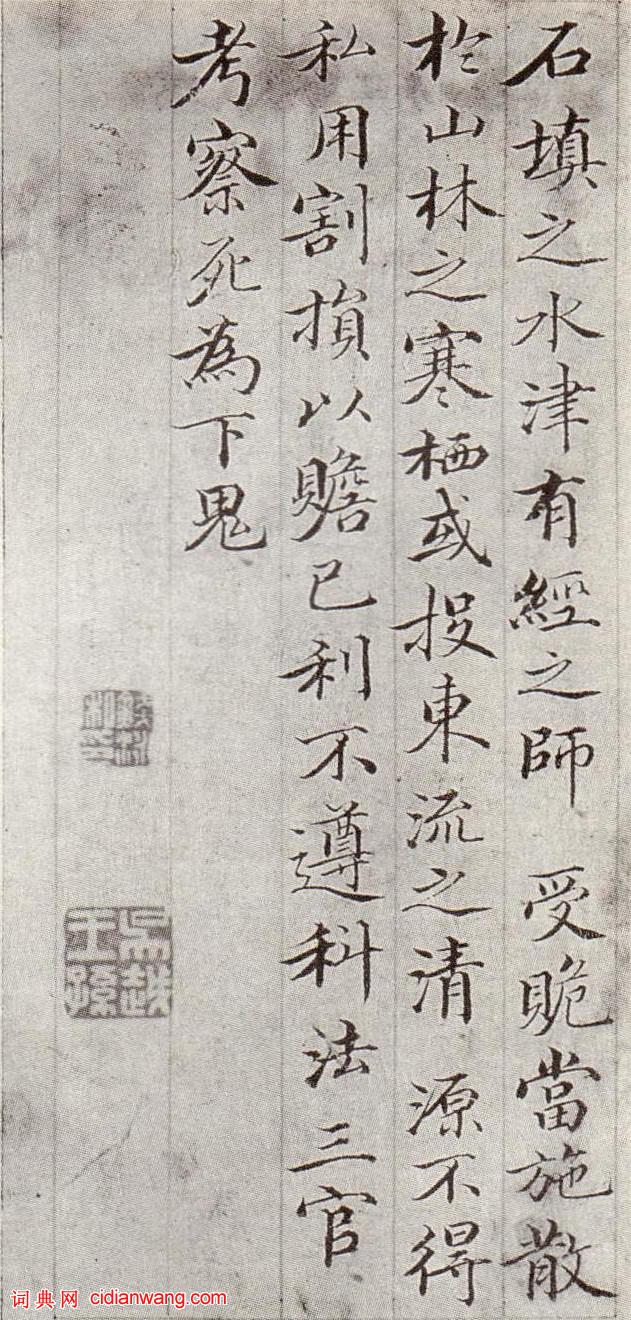 石填之水津有經之師受賍當施散
於山林之寒栖或投東流之清源不得
私用割損以贍己利不遵科法三官
考察死為下鬼
吳越王孫
词典网 cidianwang.com